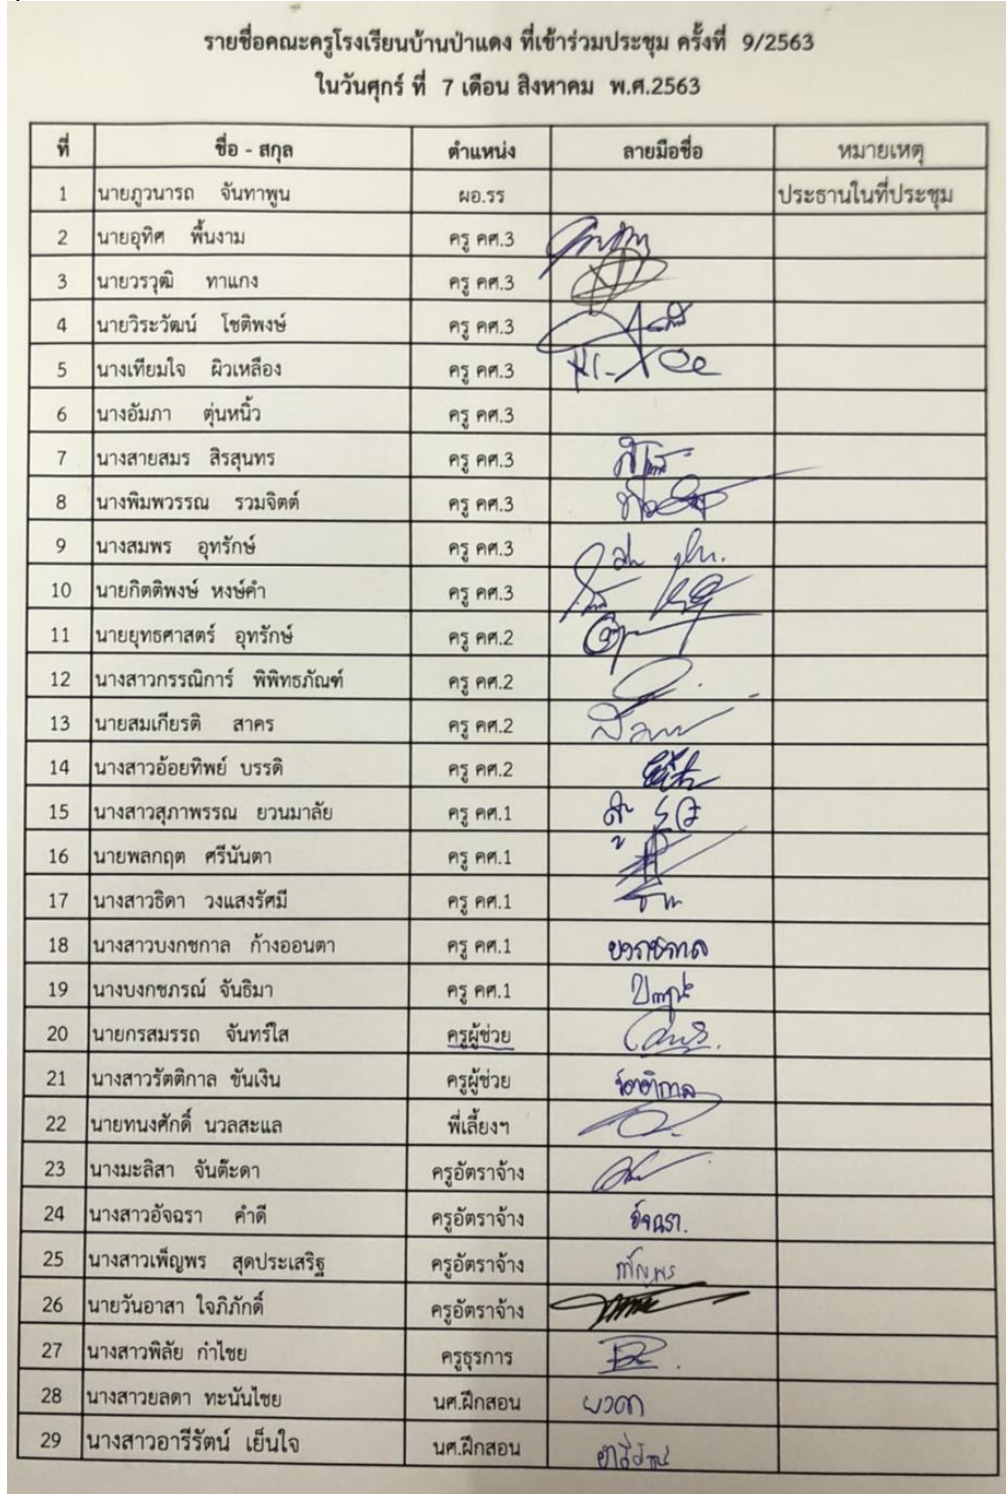 รายชื่อคณะครูโรงเรียนบ้านป่าแดง ที่เข้าร่วมประชุม ครั้งที่ 9/2563
ในวันศุกร์ ที่ 7 เดือน สิงหาคม พ.ศ.2563
ที่ ชื่อ - สกุล ตำแหน่ง ลายมือชื่อ หมายเหตุ
1 นายภูวนารถ จันทาพูน ผอ.รร ประธานในที่ประชุม
2 นายอุทิศ พื้นงาม ครู คศ.3
3 นายวรวุฒิ ทาแกง ครู คศ.3
4 นายวิระวัฒน์ โชติพงษ์ ครู คศ.3
5 นางเทียมใจ ผิวเหลือง ครู คศ.3
6 นางอัมภา ตุ่นหนิ้ว ครู คศ.3
7 นางสายสมร สิรสุนทร ครู คศ.3
8 นางพิมพวรรณ รวมจิตต์ ครู คศ.3
9 นางสมพร อุทรักษ์ ครู คศ.3
10 นายกิตติพงษ์ หงษ์คำ ครู คศ.3
11 นายยุทธศาสตร์ อุทรักษ์ ครู คศ.2
12 นางสาวกรรณิการ์ พิพิทธภัณฑ์ ครู คศ.2
13 นายสมเกียรติ สาคร ครู คศ.2
14 นางสาวอ้อยทิพย์ บรรดิ ครู คศ.2
15 นางสาวสุภาพรรณ ยวนมาลัย ครู คศ.1
16 นายพลกฤต ศรีนันตา ครู คศ.1
17 นางสาวธิดา วงแสงรัศมี ครู คศ.1
18 นางสาวบงกชกาล ก้างออนตา ครู คศ.1 บงกชกาล
19 นางบงกชภรณ์ จันธิมา ครู คศ.1
20 นายกรสมรรถ จันทร์ใส ครูผู้ช่วย
21 นางสาวรัตติกาล ขันเงิน ครูผู้ช่วย รัตติกาล
22 นายทนงศักดิ์ นวลสะแล พี่เลี้ยงฯ
23 นางมะลิสา จันต๊ะดา ครูอัตราจ้าง
24 นางสาวอัจฉรา คำดี ครูอัตราจ้าง อัจฉรา.
25 นางสาวเพ็ญพร สุดประเสริฐ ครูอัตราจ้าง เพ็ญพร
26 นายวันอาสา ใจภิภักดิ์ ครูอัตราจ้าง
27 นางสาวพิลัย กำไชย ครูธุรการ
28 นางสาวยลดา ทะนันไชย นศ.ฝึกสอน ยลดา
29 นางสาวอารีรัตน์ เย็นใจ นศ.ฝึกสอน อารีรัตน์